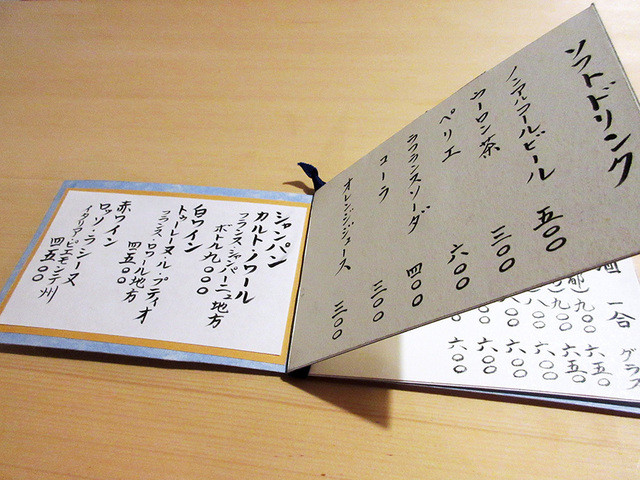 ソフトドリンク
ノンアルコールビール 五〇〇
ウーロン茶 三〇〇
ペリエ 六〇〇
ラフランスソーダ 四〇〇
コーラ 三〇〇
オレンジジュース 三〇〇
シャンパン
カルト・ノワール
フランス・シャンパーニュ地方
ボトル九〇〇〇
白ワイン
トゥーレーヌ・ル・プティオ
フランス・ロワール地方
四五〇〇
赤ワイン
ロッソ・ラシーヌ
イタリア・ピエモンテ州
四五〇〇
一合 グラス
九〇〇 六五〇
九〇〇 六五〇
八〇〇 六〇〇
六〇〇
六〇〇
六〇〇